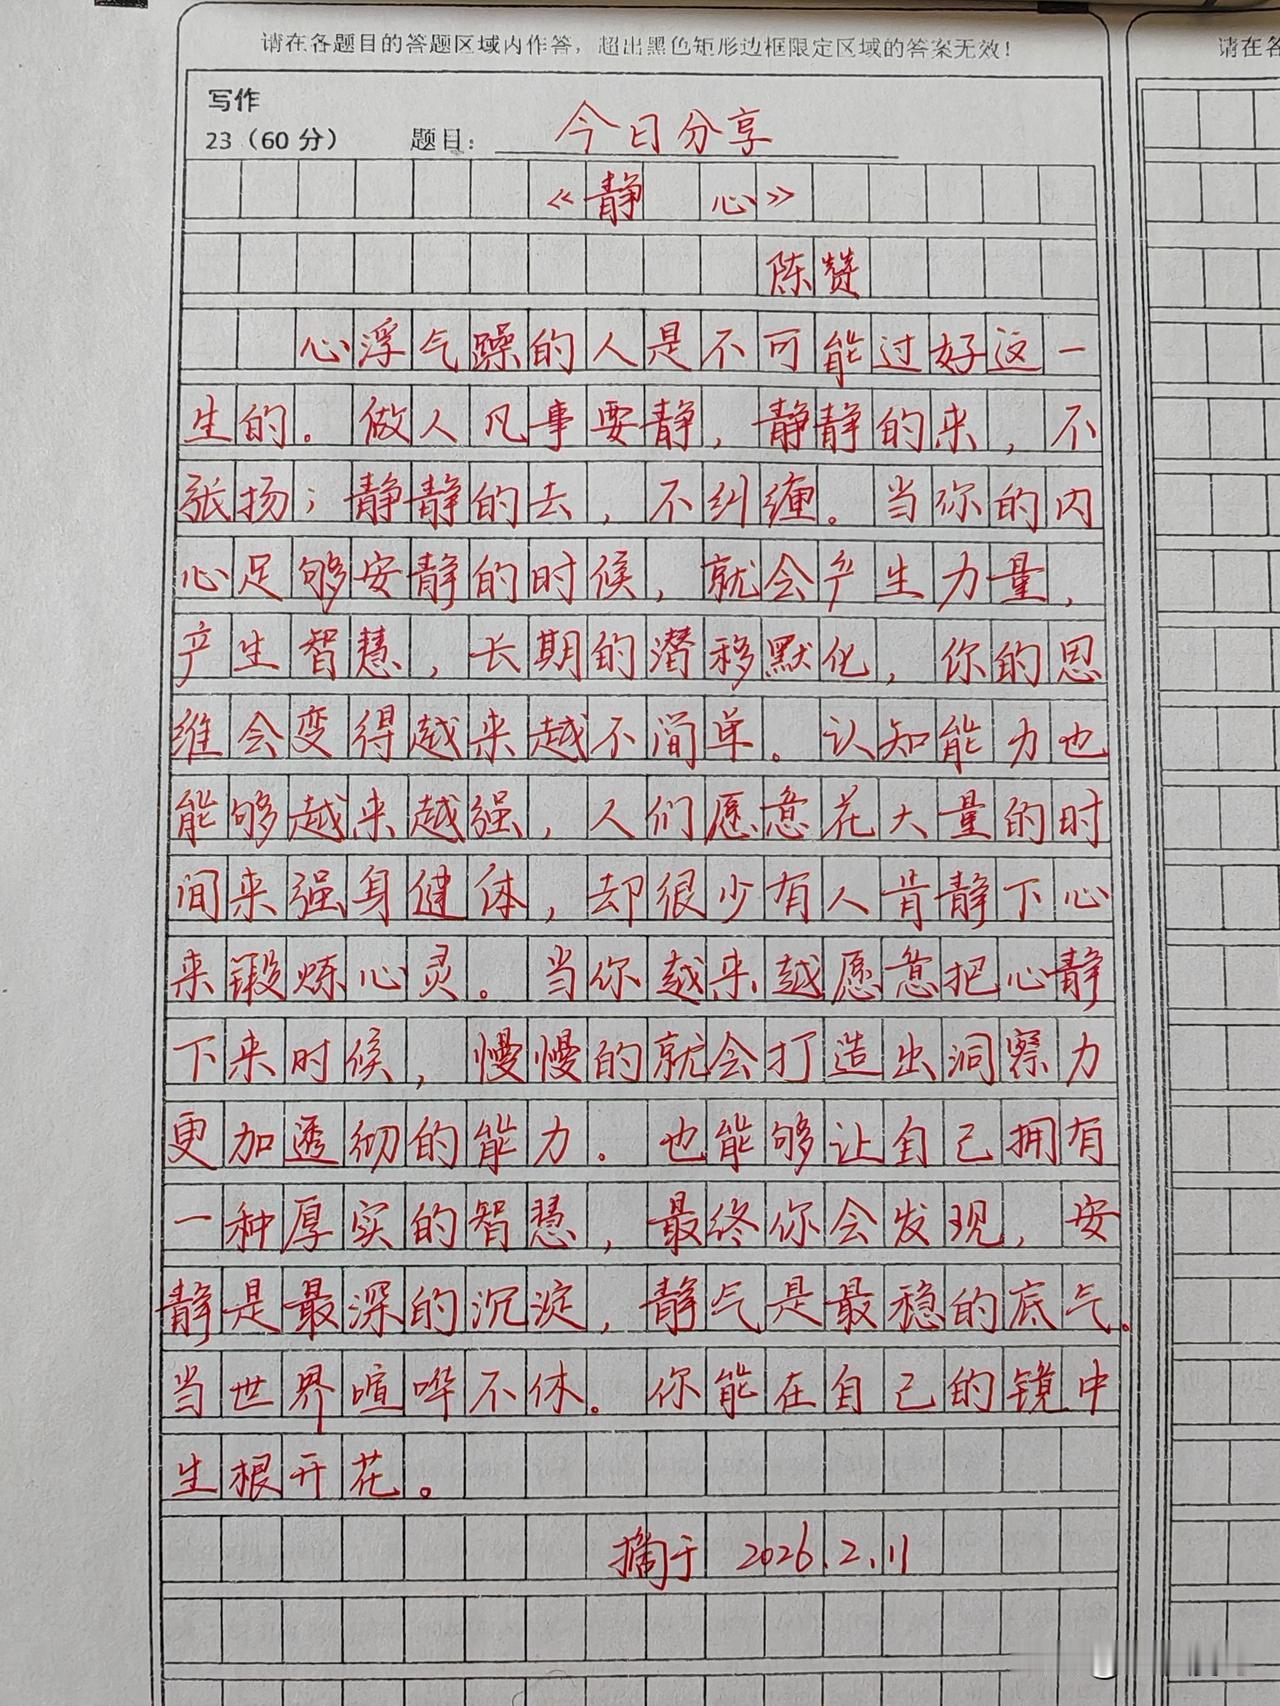 请在各题目的答题区域内作答，超出黑色矩形边框限定区域的答案无效！
请在各
写作
23（60分） 题目：今日分享
《静 心》
陈赞
心浮气躁的人是不可能过好这一
生的。做人凡事要静，静静的来，不
张扬；静静的去，不纠缠。当你的内
心足够安静的时候，就会产生力量，
产生智慧，长期的潜移默化，你的思
维会变得越来越不简单。认知能力也
能够越来越强，人们愿意花大量的时
间来强身健体，却很少有人肯静下心
来锻炼心灵。当你越来越愿意把心静
下来时候，慢慢的就会打造出洞察力
更加透彻的能力。也能够让自己拥有
一种厚实的智慧，最终你会发现，安
静是最深的沉淀，静气是最稳的底气。
当世界喧哗不休。你能在自己的镜中
生根开花。
摘于 2026.2.11